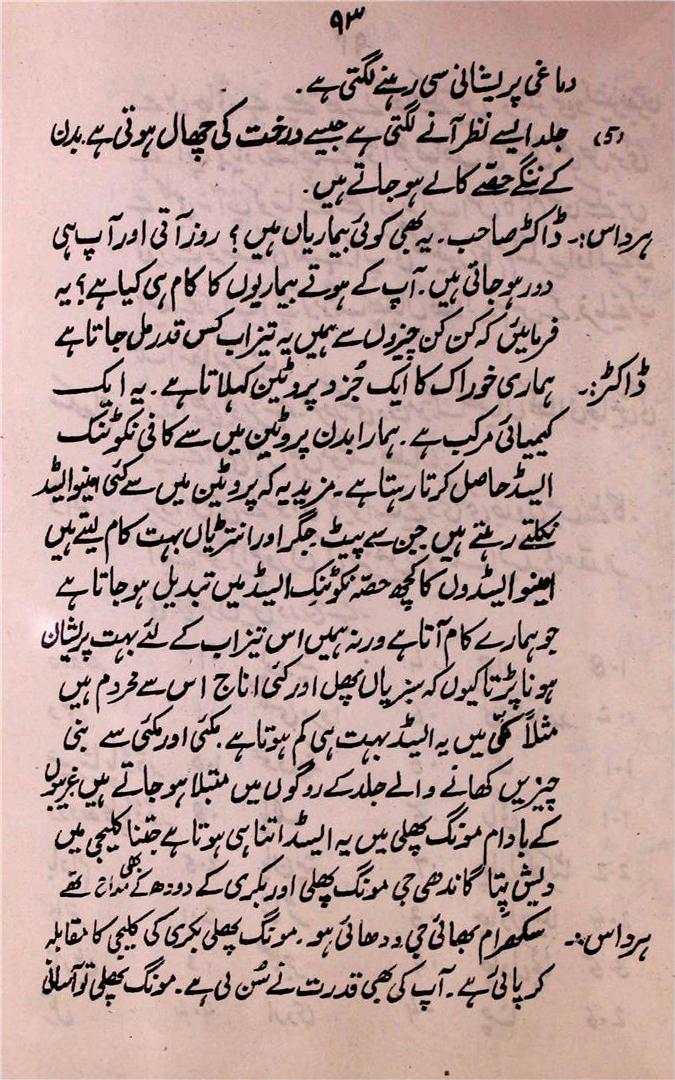 ۹۳
دماغی پریشانی سی رہنے لگتی ہے۔
(5) جلد ایسے نظر آنے لگتی ہے جیسے درخت کی چھال ہوتی ہے۔ بدن
کے ننگے حصّے کالے ہو جاتے ہیں۔
ہرداس:۔ ڈاکٹر صاحب۔ یہ بھی کوئی بیماریاں ہیں؟ روز آتی اور آپ ہی
دور ہو جاتی ہیں۔ آپ کے ہوتے بیماریوں کا کام ہی کیا ہے؟ یہ
فرمایئں کہ کن کن چیزوں سے ہمیں یہ تیزاب کس قدر مل جاتا ہے
ڈاکٹر:۔ ہماری خوراک کا ایک جُزو پروٹین کہلاتا ہے۔ یہ ایک
کیمیائی مرکب ہے۔ ہمارا بدن پروٹین میں سے کافی نکوٹنک
ایسڈ حاصل کرتا رہتا ہے۔ مزید یہ کہ پروٹین میں سے کئی امینو ایسڈ
نکلتے رہتے ہیں جن سے پیٹ جگر اور انتڑیاں بہت کام لیتے ہیں
امینو ایسڈوں کا کچھ حصّہ نکوٹنک ایسڈ میں تبدیل ہو جاتا ہے
جو ہمارے کام آتا ہے ورنہ ہمیں اس تیزاب کے لئے بہت پریشان
ہونا پڑتا کیوں کہ سبزیاں پھل اور کئی اناج اس سے محروم ہیں
مثلاً مکّی میں یہ ایسڈ بہت ہی کم ہوتا ہے۔ مکئی اور مکئی سے بنی
چیزیں کھانے والے جلد کے روگوں میں مبتلا ہو جاتے ہیں غریبوں
کے بادام مونگ پھلی میں یہ ایسڈ اتنا ہی ہوتا ہے جتنا کلیجی میں
دیش پِتا گاندھی جی مونگ پھلی اور بکری کے دودھ کے بھی مداح تھے
ہرداس:۔ سکھرام بھائی جی ودھائی ہو۔ مونگ پھلی بکری کی کلیجی کا مقابلہ
کر پائی ہے۔ آپ کی بھی قدرت نے سُن لی ہے۔ مونگ پھلی تو آسانی